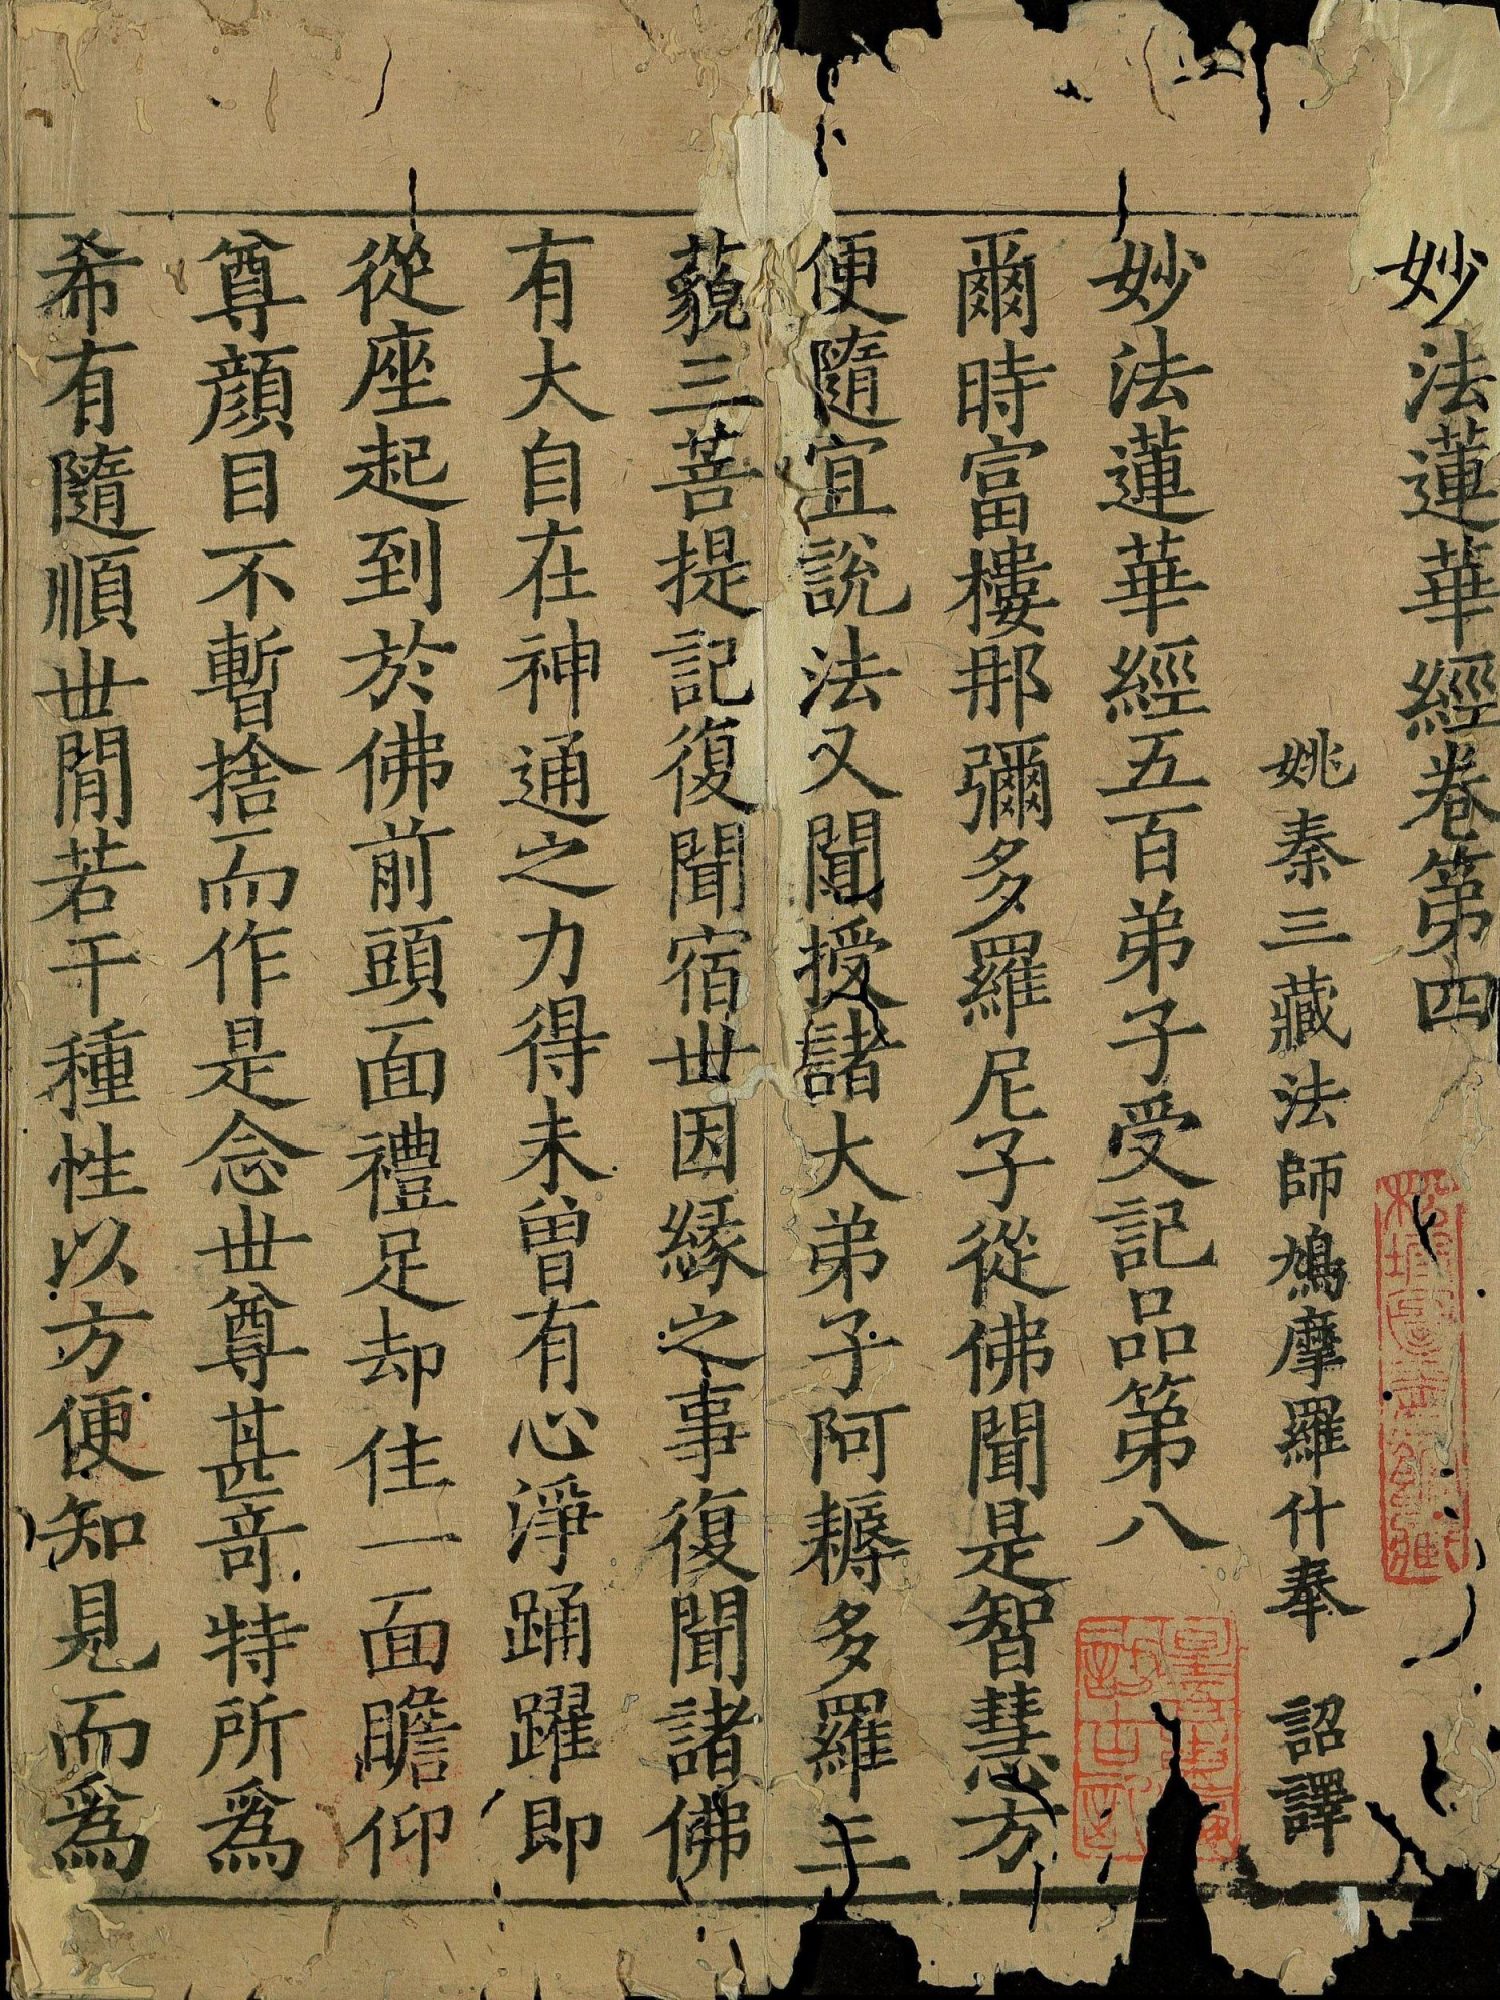 妙法蓮華經卷第四
姚秦三藏法師鳩摩羅什奉 詔譯
妙法蓮華經五百弟子受記品第八
爾時富樓那彌多羅尼子從佛聞是智慧方
便隨宜說法又聞授諸大弟子阿耨多羅三
藐三菩提記復聞宿世因緣之事復聞諸佛
有大自在神通之力得未曾有心淨踊躍即
從座起到於佛前頭面禮足却住一面瞻仰
尊顔目不暫捨而作是念世尊甚奇特所爲
希有隨順世間若干種性以方便知見而爲